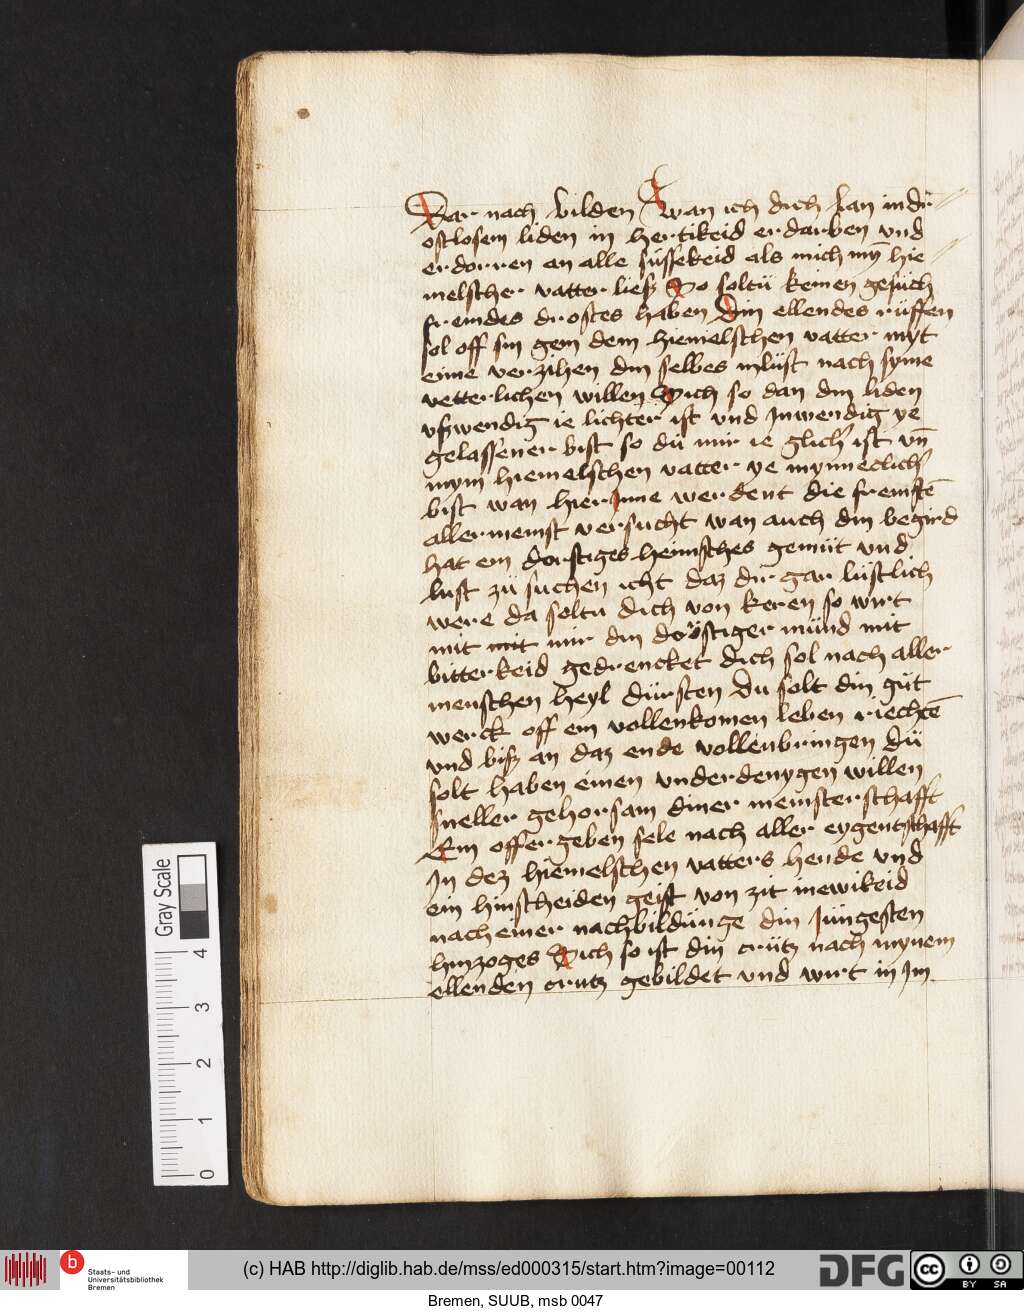 Dar nach bilden Swan ich dich lan in dr
ostlosem liden in hertikeid er darben vnd
erdorren an alle süssekeid als mich myn hie
melscher vatter liesz So soltü keinen gesüch
fremdes drostes haben Din ellendes rüffen
sol off sin gem dem hiemelschen vatter myt
eime verzihen din selbes inlüst nach syme
vetterlichen willen Sich so dan din liden
vszwendig ie lichter ist vnd Inwendig ye
gelassener bist so dü mir ie glich ist vn̄
mym hiemelschen vatter ye mynneclich
bist wan hier Inne werdent die fremstē
allermeinst versucht wan auch din begird
hat ein dorstiges heimsches gemüt vnd
lust zü suchen icht daz dir gar lüstlich
were da soltu dich von keren so wirt
mit mit mir din dorstiger münd mit
bitterkeid gedrencket dich sol nach aller
menschen heyl dürsten Du solt din güt
werck off ein vollenkomen leben riechtē
vnd bisz an daz ende vollenbringen dü
solt haben einen vnderdenygen willen
sneller gehorsam diner meinsterschafft
Ein offergeben sele nach aller eygentschafft
In dez hiemelschen vatters hende vnd
ein hinscheiden geist von zit inewikeid
nach einer nachbildünge din Jüngesten
hinzoges Sich so ist din crütz nach mynem
ellenden crutz gebildet vnd wirt in Im
Gray Scale
4
3
2
1
0
b
Staats- und
Universitätsbibliothek
Bremen
(c) HAB http://diglib.hab.de/mss/ed000315/start.htm?image=00112
DFG
cc
BY SA
Bremen, SUUB, msb 0047